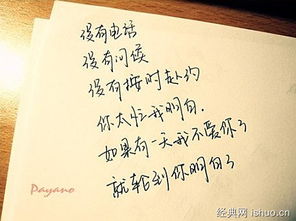 没有电话
没有问候
没有按时赴约
你太忙我明白.
如果有一天我不爱你了
就轮到你明白了
Payano
经典网 ishuo.cn